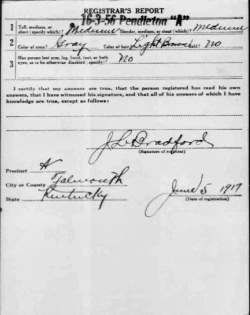 REGISTRAR'S REPORT
16-3-56 Pendleton "A"
1 Tall, medium, or short (specify which)? Medium Slender, medium, or stout (which)? Medium
2 Color of eyes? Gray Color of hair? Light Brown Bald? No
3 Has person lost arm, leg, hand, foot, or both eyes, or is he otherwise disabled (specify)? No
I certify that my answers are true, that the person registered has read his own answers, that I have witnessed his signature, and that all of his answers of which I have knowledge are true, except as follows:
J L Bradford
(Signature of registrar)
Precinct A
City or County Falmouth
State Kentucky
June 5 1917
(Date of registration)